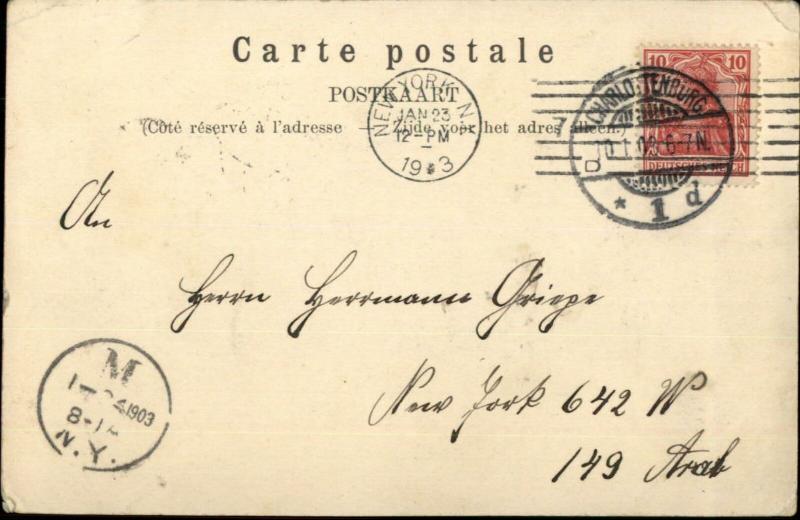 Carte postale
POSTKAART
(Côté réservé à l'adresse — Zijde voor het adres alleen.)
NEW YORK N
JAN 23
12-PM
1903
10 10
DEUTSCHES REICH
CHARLOTTENBURG
6-7N.
* 1 d
An
Herrn Herrmann Griepe
New York 642 W
149
M
1903
N.Y.